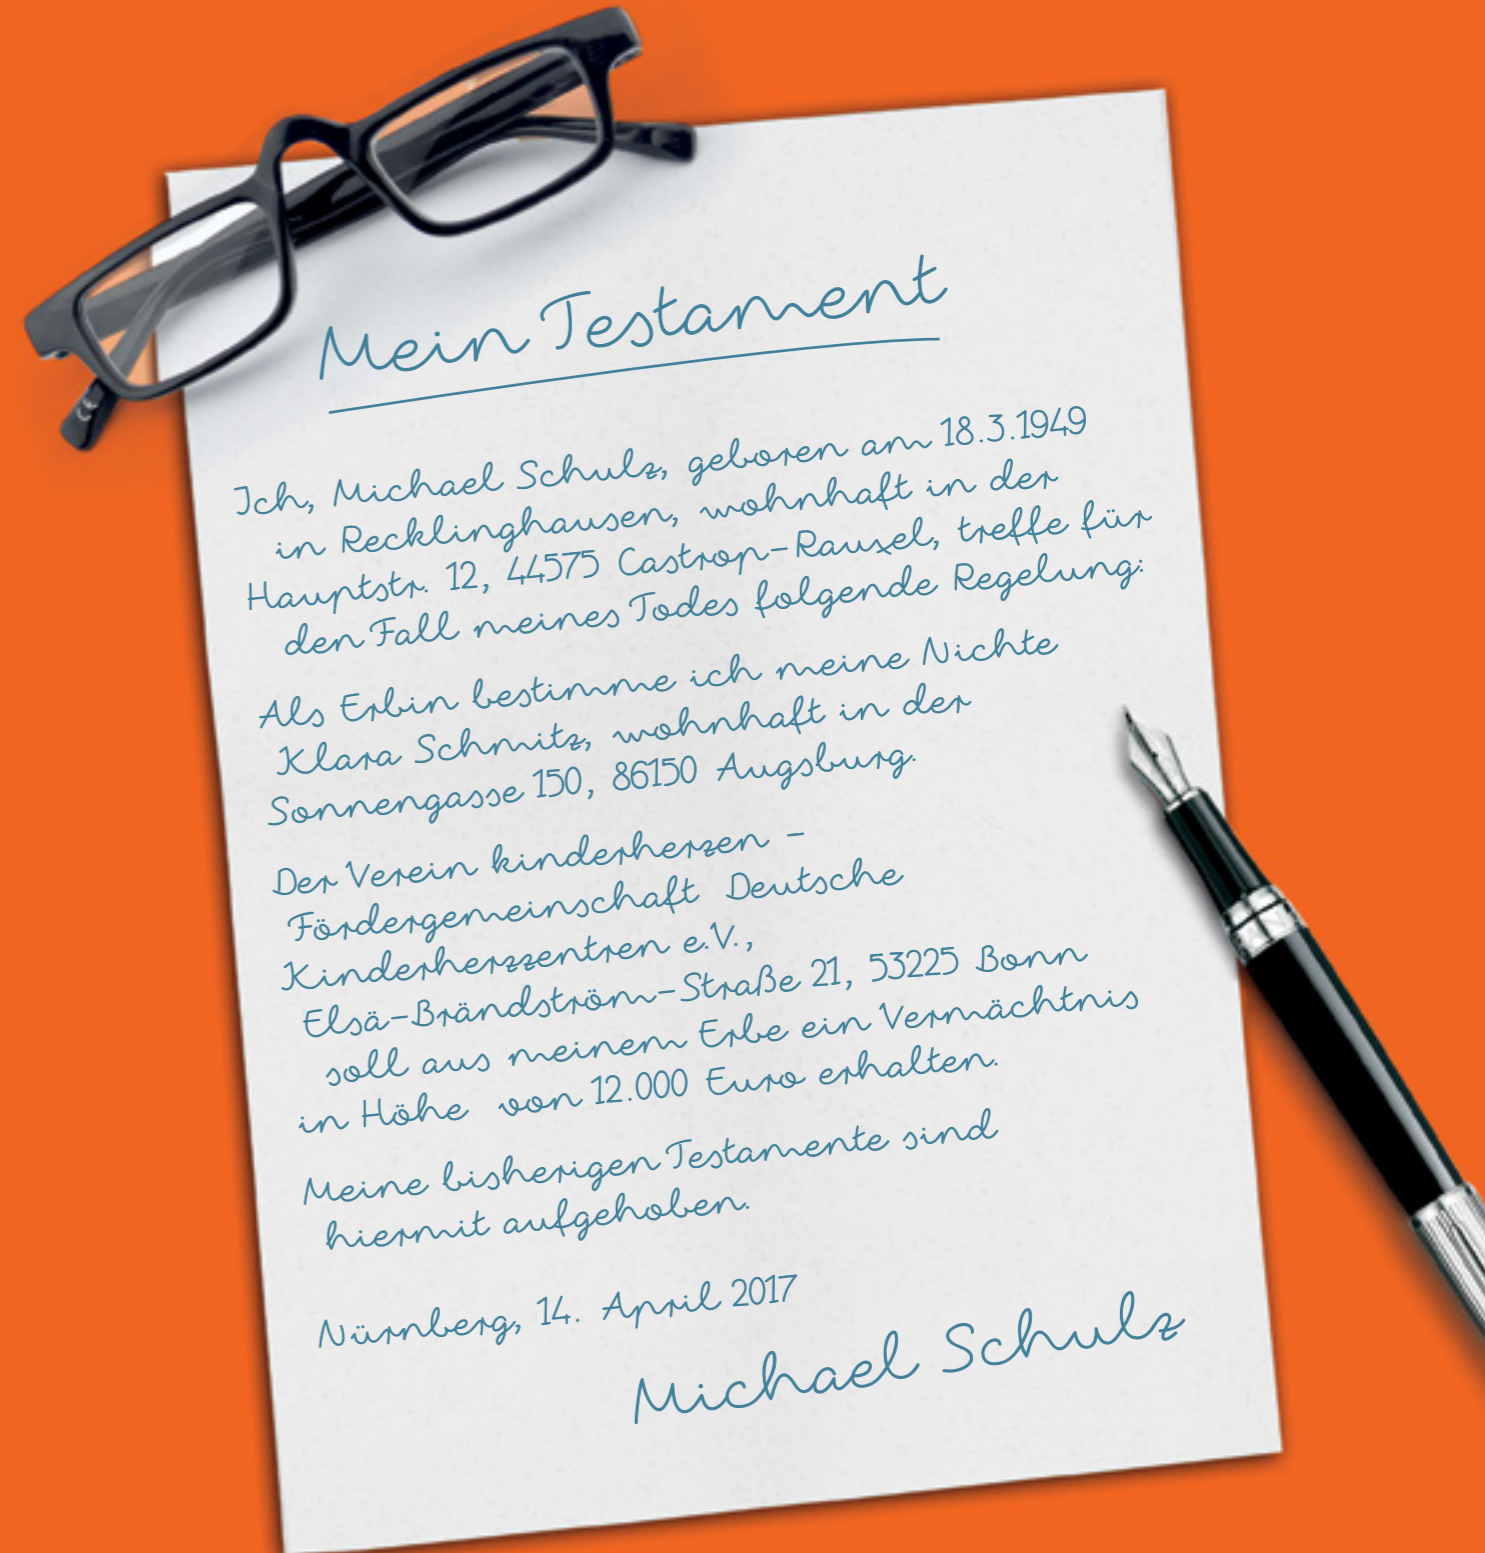 Mein Testament
Ich, Michael Schulz, geboren am 18.3.1949
in Recklinghausen, wohnhaft in der
Hauptstr. 12, 44575 Castrop-Rauxel, treffe für
den Fall meines Todes folgende Regelung:
Als Erbin bestimme ich meine Nichte
Klara Schmitz, wohnhaft in der
Sonnengasse 150, 86150 Augsburg.
Der Verein kinderherzen -
Fördergemeinschaft Deutsche
Kinderherzzentren e.V.,
Elsä-Brändström-Straße 21, 53225 Bonn
soll aus meinem Erbe ein Vermächtnis
in Höhe von 12.000 Euro erhalten.
Meine bisherigen Testamente sind
hiermit aufgehoben.
Nürnberg, 14. April 2017
Michael Schulz